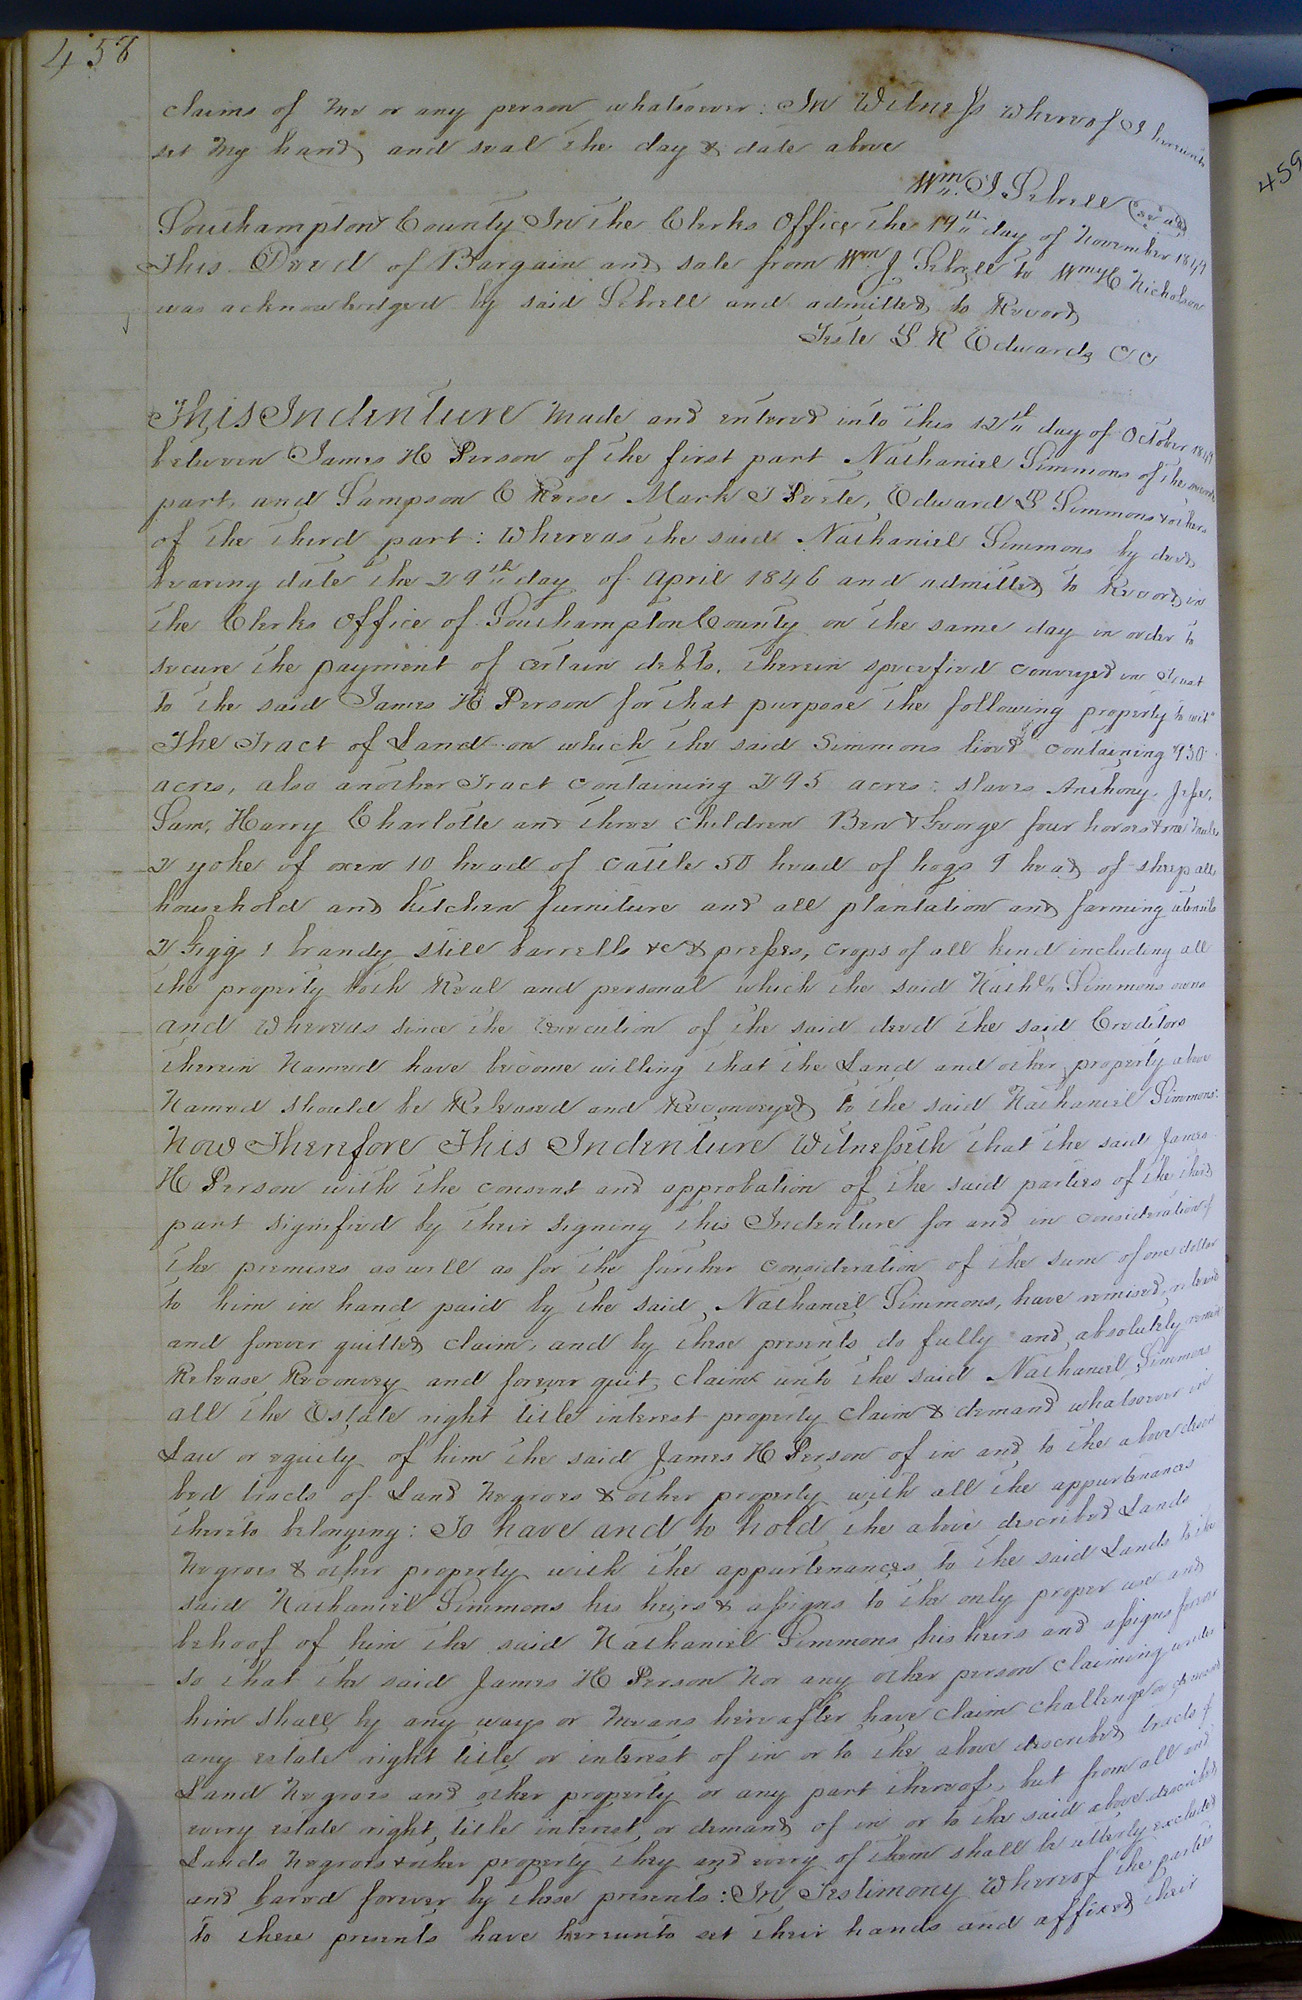 458
claims of me or any person whatsoever: In Witness whereof I hereunto
set my hand and seal the day & date above
Wm. J. Sebrell (seal)
Southampton County In the Clerks Office the 19th day of November 1849
This Deed of Bargain and sale from Wm J. Sebrell to Wm H Nicholson
was acknowledged by said Sebrell and admitted to Record
Teste L R Edwards C C
459
This Indenture made and entered into this 12th day of October 1849
between James H Person of the first part Nathaniel Simmons of the second
part, and Sampson C Reese Mark J Pretlow, Edward B Simmons & others
of the third part: Whereas the said Nathaniel Simmons by deed
bearing date the 29th day of April 1846 and admitted to Record in
the Clerks Office of Southampton County on the same day in order to
secure the payment of certain debts, therein specified conveyed in Trust
to the said James H Person for that purpose the following property to wit
The Tract of Land on which the said Simmons lived containing 930
acres, also another Tract containing 295 acres: slaves Anthony, Jesse,
Sam, Harry Charlotte and three children Ben & George four horses & one mule
2 yoke of oxen 10 head of cattle 50 head of hogs 9 head of sheep all
household and kitchen furniture and all plantation and farming utensils
2 Giggs 1 brandy still barrells &c & presses, crops of all kind including all
the property both Real and personal which the said Nathl Simmons owns
and whereas since the execution of the said deed the said Creditors
therein Named have become willing that the Land and other property above
Named should be Released and Reconveyed to the said Nathaniel Simmons:
Now Therefore This Indenture Witnesseth that the said James
H Person with the consent and approbation of the said parties of the third
part signified by their signing this Indenture for and in consideration of
the premises as well as for the further consideration of the sum of one dollar
to him in hand paid by the said Nathaniel Simmons, have remised, released
and forever quitted claim, and by these presents do fully and absolutely remise
Release Reconvey and forever quit claim unto the said Nathaniel Simmons
all the Estate right title interest property claim & demand whatsoever in
Law or equity of him the said James H Person of in and to the above descri
bed tracts of Land Negroes & other property with all the appurtenances
thereto belonging: To have and to hold the above described Lands
Negroes & other property with the appurtenances to the said Lands to the
said Nathaniel Simmons his heirs & assigns to the only proper use and
behoof of him the said Nathaniel Simmons his heirs and assigns forever
so that the said James H Person Nor any other person claiming under
him shall by any ways or means hereafter have claim challenge or demand
any estate right title or interest of in or to the above described tracts of
Land Negroes and other property or any part thereof, but from all and
every estate right, title interest or demand of in or to the said above described
Lands Negroes & other property they and every of them shall be utterly excluded
and bared forever by these presents: In Testimony Whereof the parties
to these presents have hereunto set their hands and affixed their